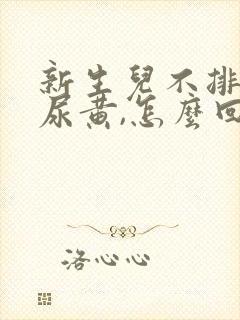 新生兒不排
尿黄,怎麽回
洛心心